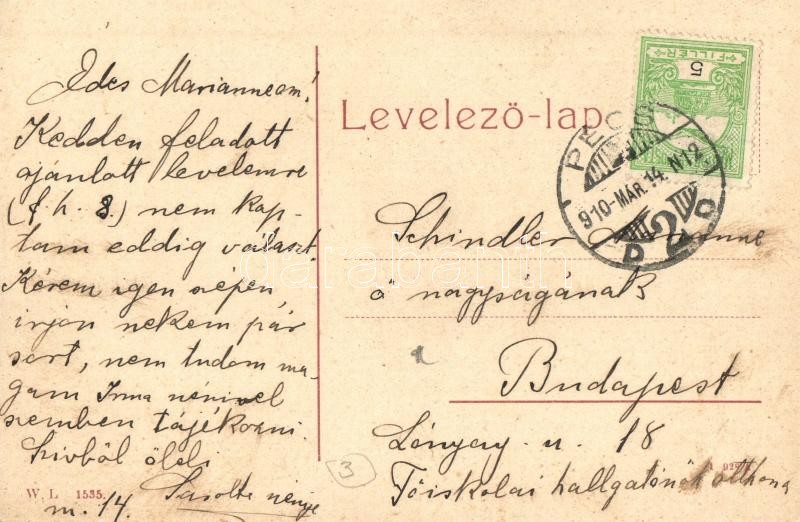 Édes Marianneom!
Kedden feladott
ajánlott levelemre
(f. h. 8.) nem kap-
tam eddig választ.
Kérem igen szépen
irjon nekem pár
sort, nem tudom ma-
gam Irma nénivel
szemben tájékozni.
Szivből öleli
Sarolta nénje
m. 14.
W. L. 1535.
Levelező-lap
5
FILLÉR
PÉCS
910-MÁR.14. N12
D 2 O
Schindler Marianne
ő nagyságának
Budapest
Lónyay-u. 18
Főiskolai hallgatónők otthona
3